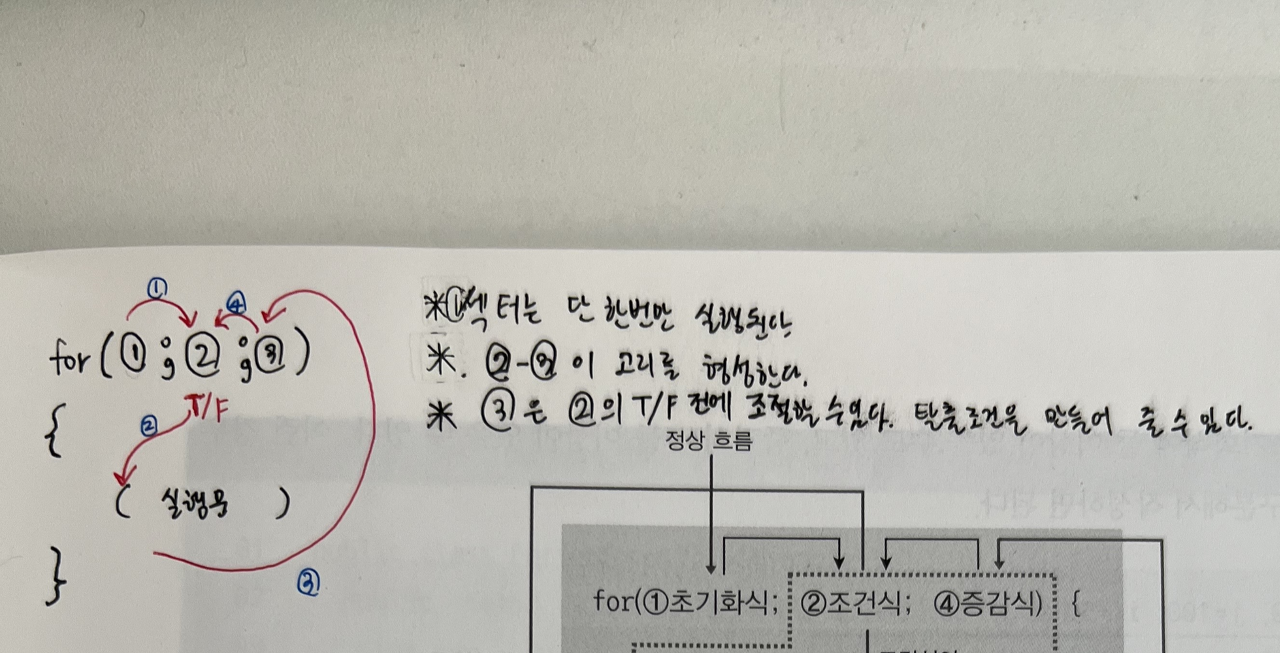 ① ④
for(① ; ② ; ③)
T/F
{
②
( 실행문 )
}
③
※ ①섹터는 단 한번만 실행된다
※. ②-③이 고리를 형성한다.
※ ③은 ②의 T/F 전에 조절할 수 있다. 탈출조건을 만들어 줄 수 있다.
정상 흐름
for(①초기화식; ②조건식; ④증감식) {